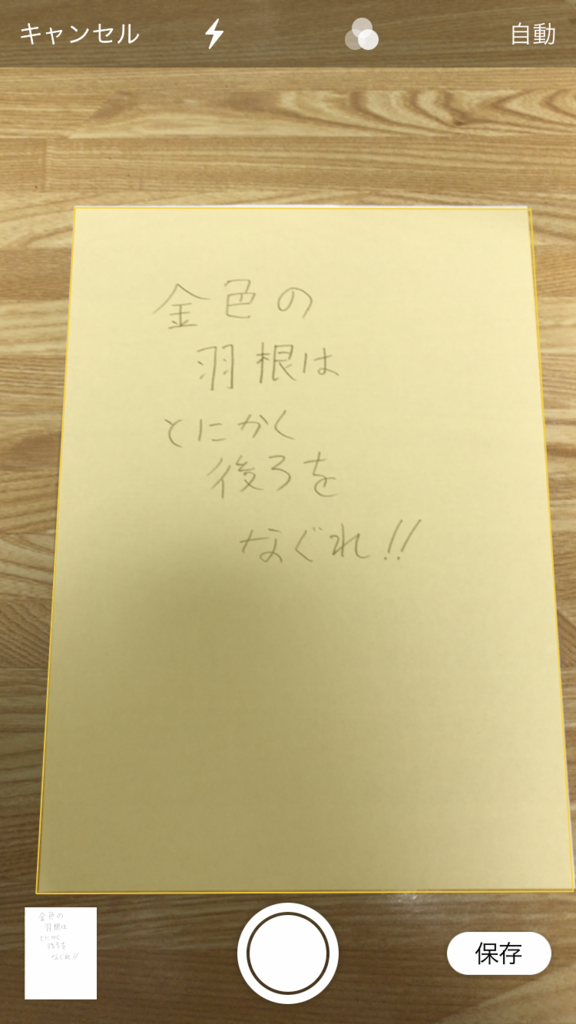 キャンセル 自動
金色の
羽根は
とにかく
後ろを
なぐれ!!
金色の
羽根は
とにかく
後ろを
なぐれ!!
保存